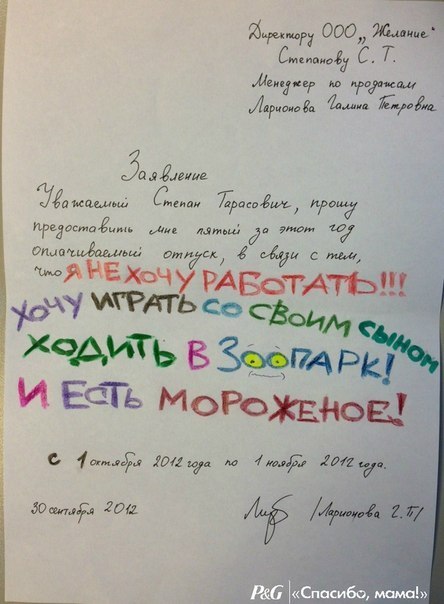 Директору ООО „Желание"
Степанову С. Т.
Менеджер по продажам
Ларионова Галина Петровна
Заявление
Уважаемый Степан Тарасович, прошу
предоставить мне пятый за этот год
оплачиваемый отпуск, в связи с тем,
что Я НЕ ХОЧУ РАБОТАТЬ!!!
ХОЧУ ИГРАТЬ СО СВОИМ СЫНОМ
ХОДИТЬ В ЗООПАРК!
И ЕСТЬ МОРОЖЕНОЕ!
с 1 октября 2012 года по 1 ноября 2012 года.
30 сентября 2012 /Ларионова Г. П/
P&G | «Спасибо, мама!»